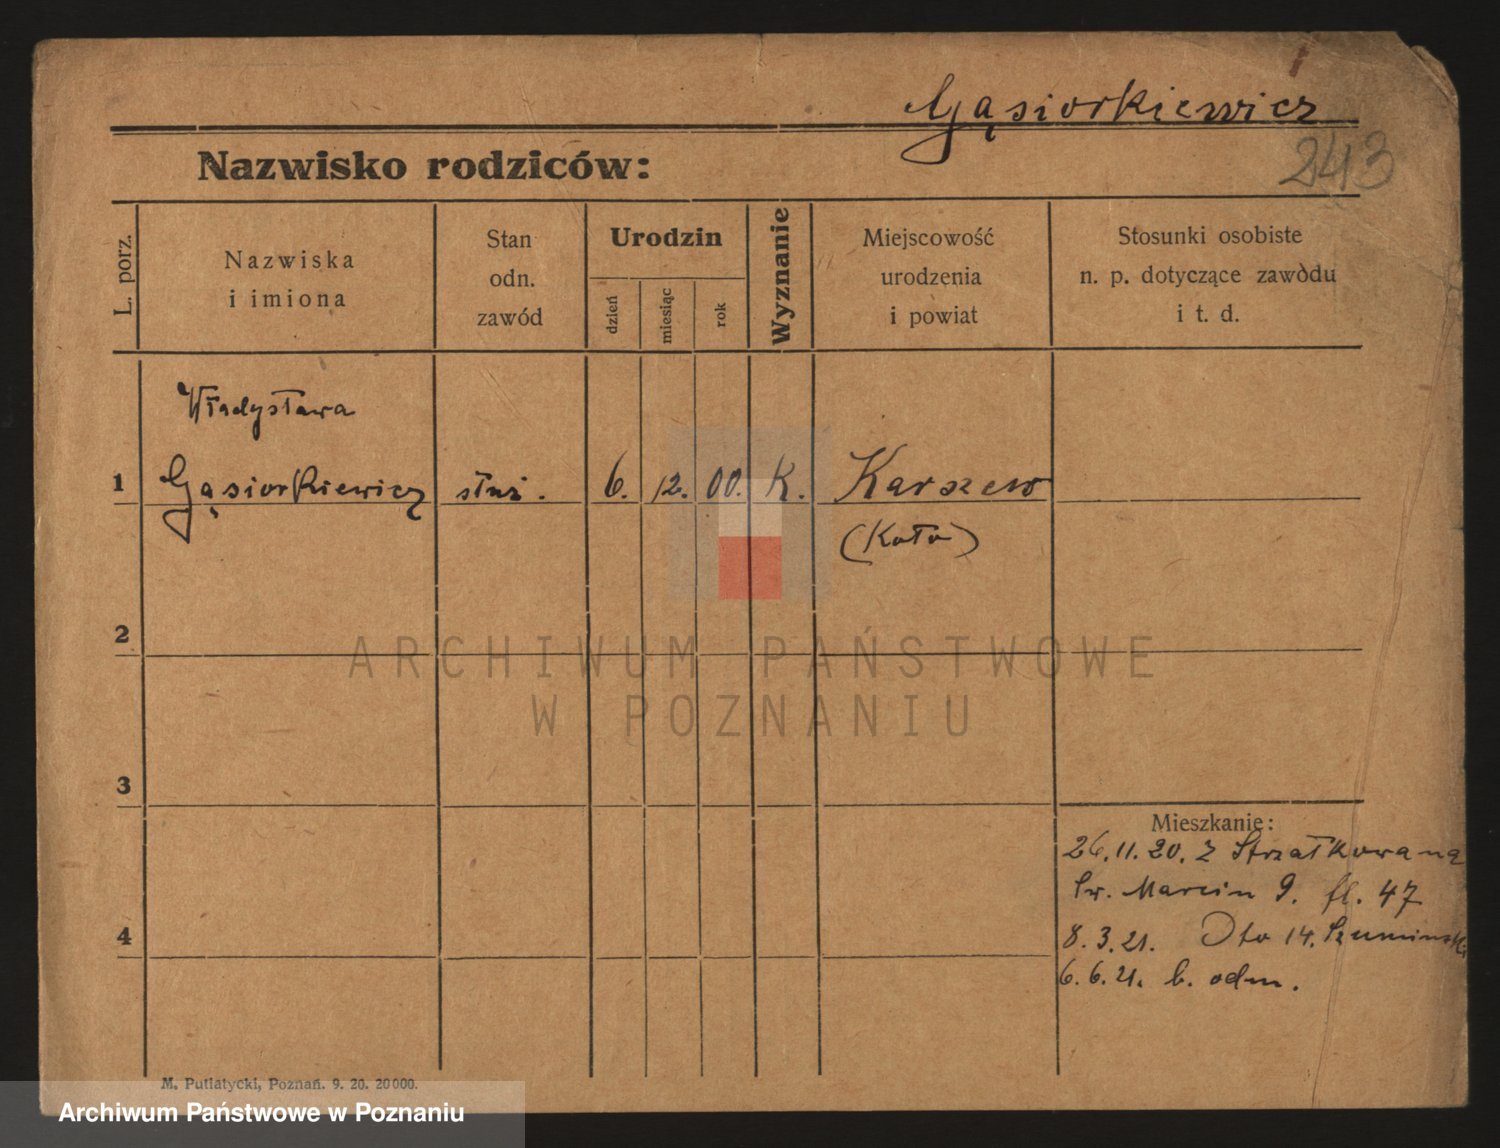 Gąsiorkiewicz
243
Nazwisko rodziców:
L. porz.
Nazwiska
i imiona
Stan
odn.
zawód
Urodzin
dzień
miesiąc
rok
Wyznanie
Miejscowość
urodzenia
i powiat
Stosunki osobiste
n. p. dotyczące zawodu
i t. d.
Władysława
1 Gąsiorkiewicz służ. 6. 12. 00. K. Karszew
(Koło)
2
3
4
Mieszkanie:
26.11.20. z Strzałkowa na
Św. Marcin 9. fl. 47
8.3.21. 14. Szumiński
6.6.21. b. odm.
M. Putiatycki, Poznań. 9. 20. 20000.
ARCHIWUM PAŃSTWOWE
W POZNANIU
Archiwum Państwowe w Poznaniu